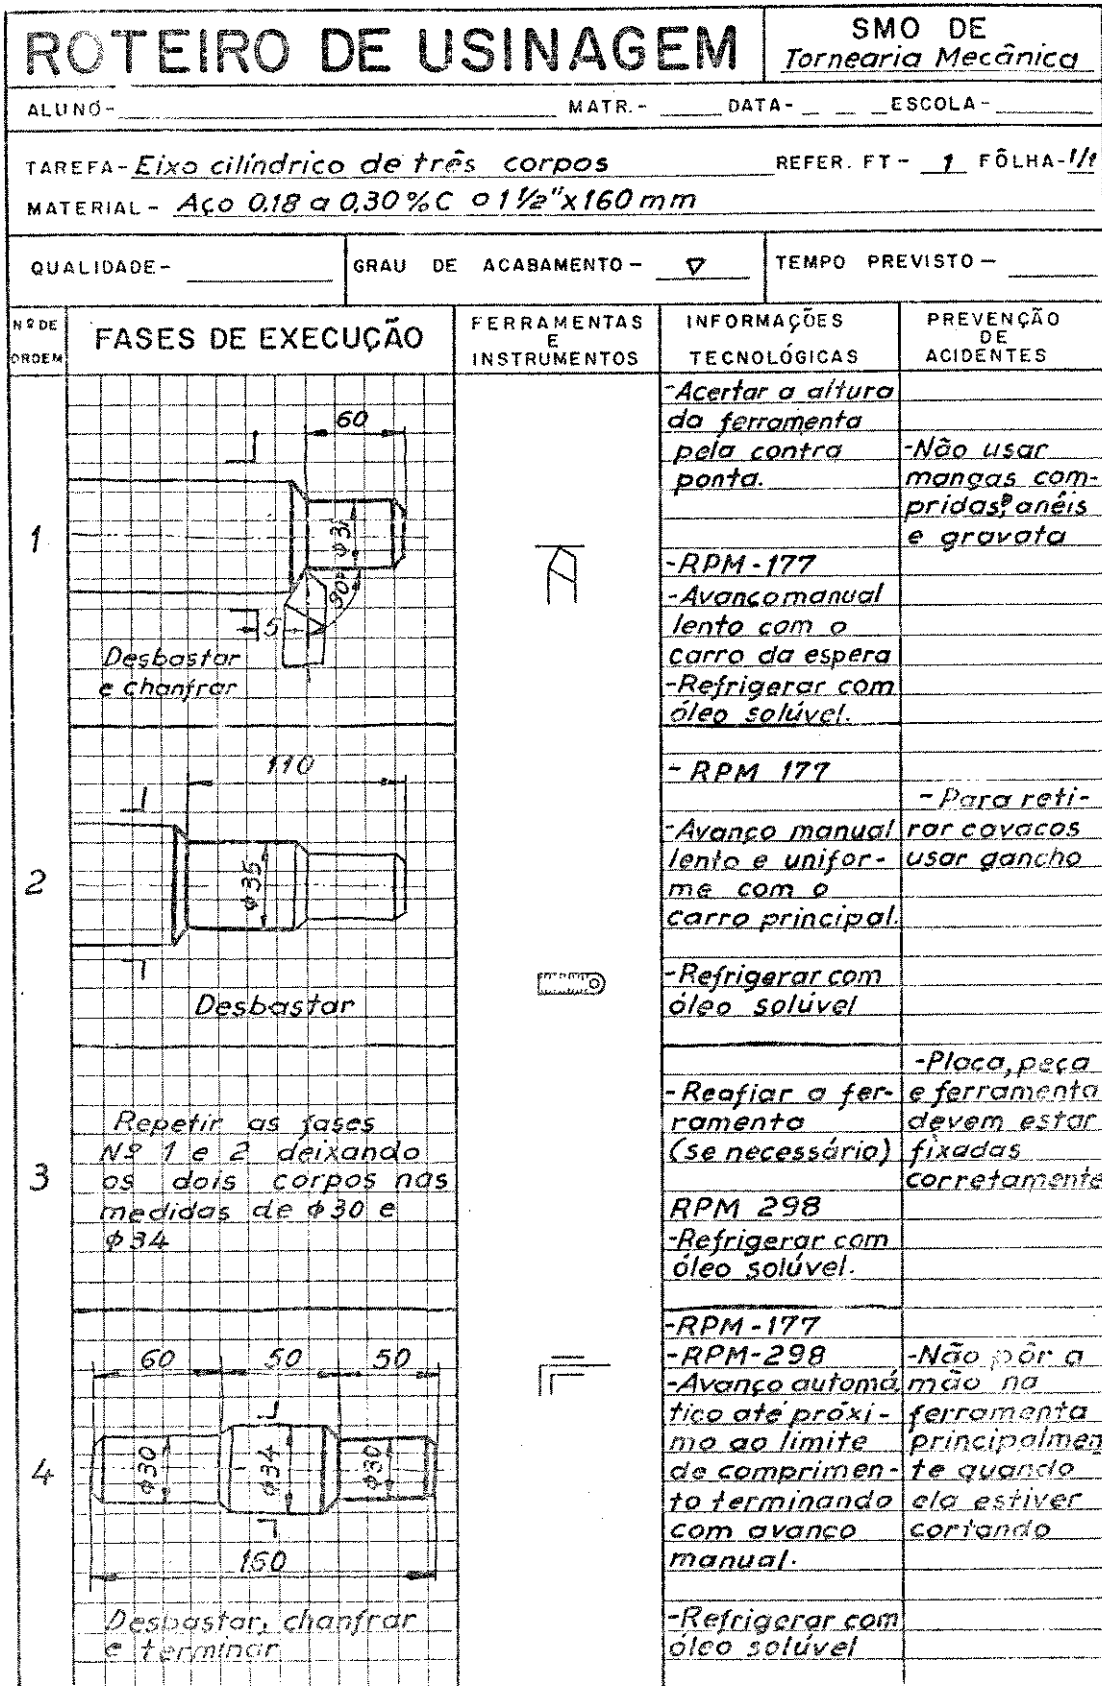 ROTEIRO DE USINAGEM
SMO DE
Tornearia Mecânica
ALUNO- MATR.- DATA- ESCOLA-
TAREFA- Eixo cilíndrico de três corpos REFER. FT- 1 FÔLHA- 1/1
MATERIAL- Aço 0.18 a 0,30%C o 1 1/2"x160 mm
QUALIDADE- GRAU DE ACABAMENTO- ▽ TEMPO PREVISTO-
Nº DE
ORDEM
FASES DE EXECUÇÃO
FERRAMENTAS
E
INSTRUMENTOS
INFORMAÇÕES
TECNOLÓGICAS
PREVENÇÃO
DE
ACIDENTES
1
60
ϕ31
90º
5
Desbastar
e chanfrar
-Acertar a altura
da ferramenta
pela contra
ponta.
-RPM-177
-Avanço manual
lento com o
carro da espera
-Refrigerar com
óleo solúvel.
-Não usar
mangas com-
pridas, anéis
e gravata
2
110
ϕ35
Desbastar
-RPM 177
-Avanço manual
lento e unifor-
me com o
carro principal.
-Refrigerar com
óleo solúvel
-Para reti-
rar cavacos
usar gancho
3
Repetir as fases
Nº 1 e 2 deixando
os dois corpos nas
medidas de ϕ30 e
ϕ34
-Reafiar a fer-
ramenta
(se necessário)
RPM 298
-Refrigerar com
óleo solúvel.
-Placa, peça
e ferramenta
devem estar
fixadas
corretamente
4
60 50 50
ϕ30 ϕ34 ϕ30
160
Desbastar, chanfrar
e terminar
-RPM-177
-RPM-298
-Avanço automá
tico até próxi-
mo ao limite
de comprimen-
to terminando
com avanco
manual.
-Refrigerar com
óleo solúvel
-Não pôr a
mão na
ferramenta
principalmen
te quando
ela estiver
cortando